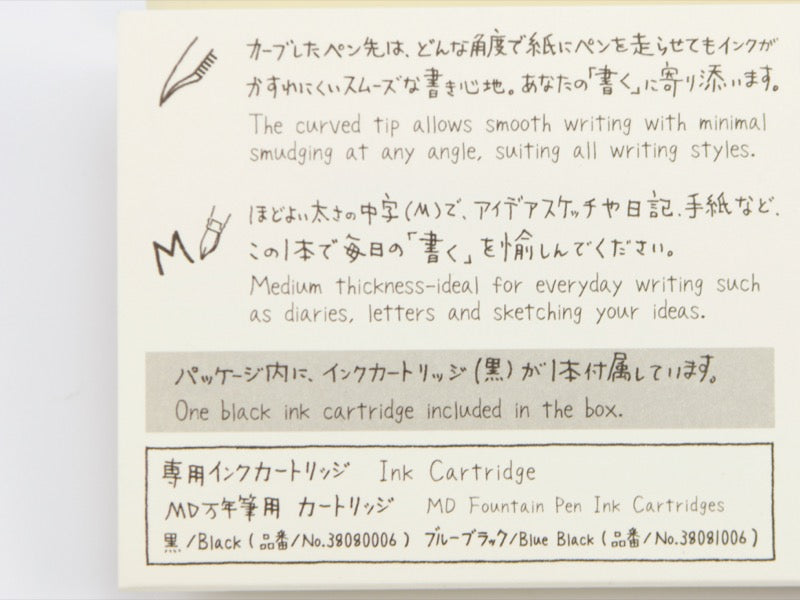 カーブしたペン先は、どんな角度で紙にペンを走らせてもインクが
かすれにくいスムーズな書き心地。あなたの「書く」に寄り添います。
The curved tip allows smooth writing with minimal
smudging at any angle, suiting all writing styles.
M
ほどよい太さの中字(M)で、アイデアスケッチや日記、手紙など、
この1本で毎日の「書く」を愉しんでください。
Medium thickness-ideal for everyday writing such
as diaries, letters and sketching your ideas.
パッケージ内に、インクカートリッジ(黒)が1本付属しています。
One black ink cartridge included in the box.
専用インクカートリッジ Ink Cartridge
MD万年筆用 カートリッジ MD Fountain Pen Ink Cartridges
黒/Black(品番/No.38080006) ブルーブラック/Blue Black(品番/No.38081006)